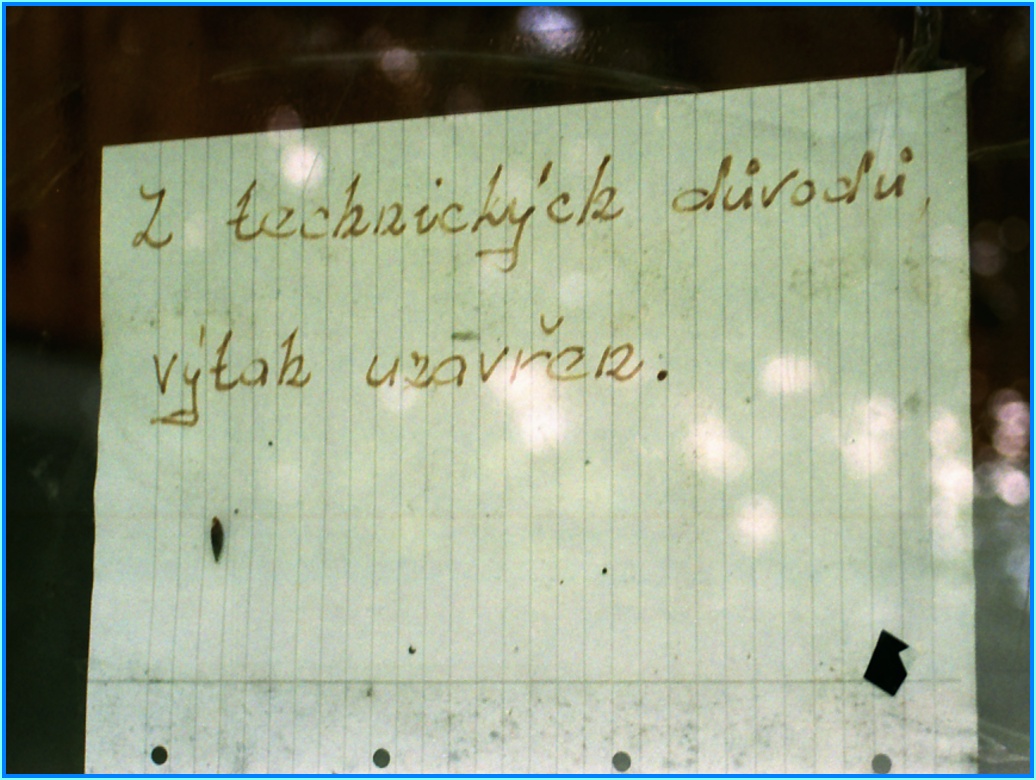 Z technických důvodů,
výtah uzavřen.